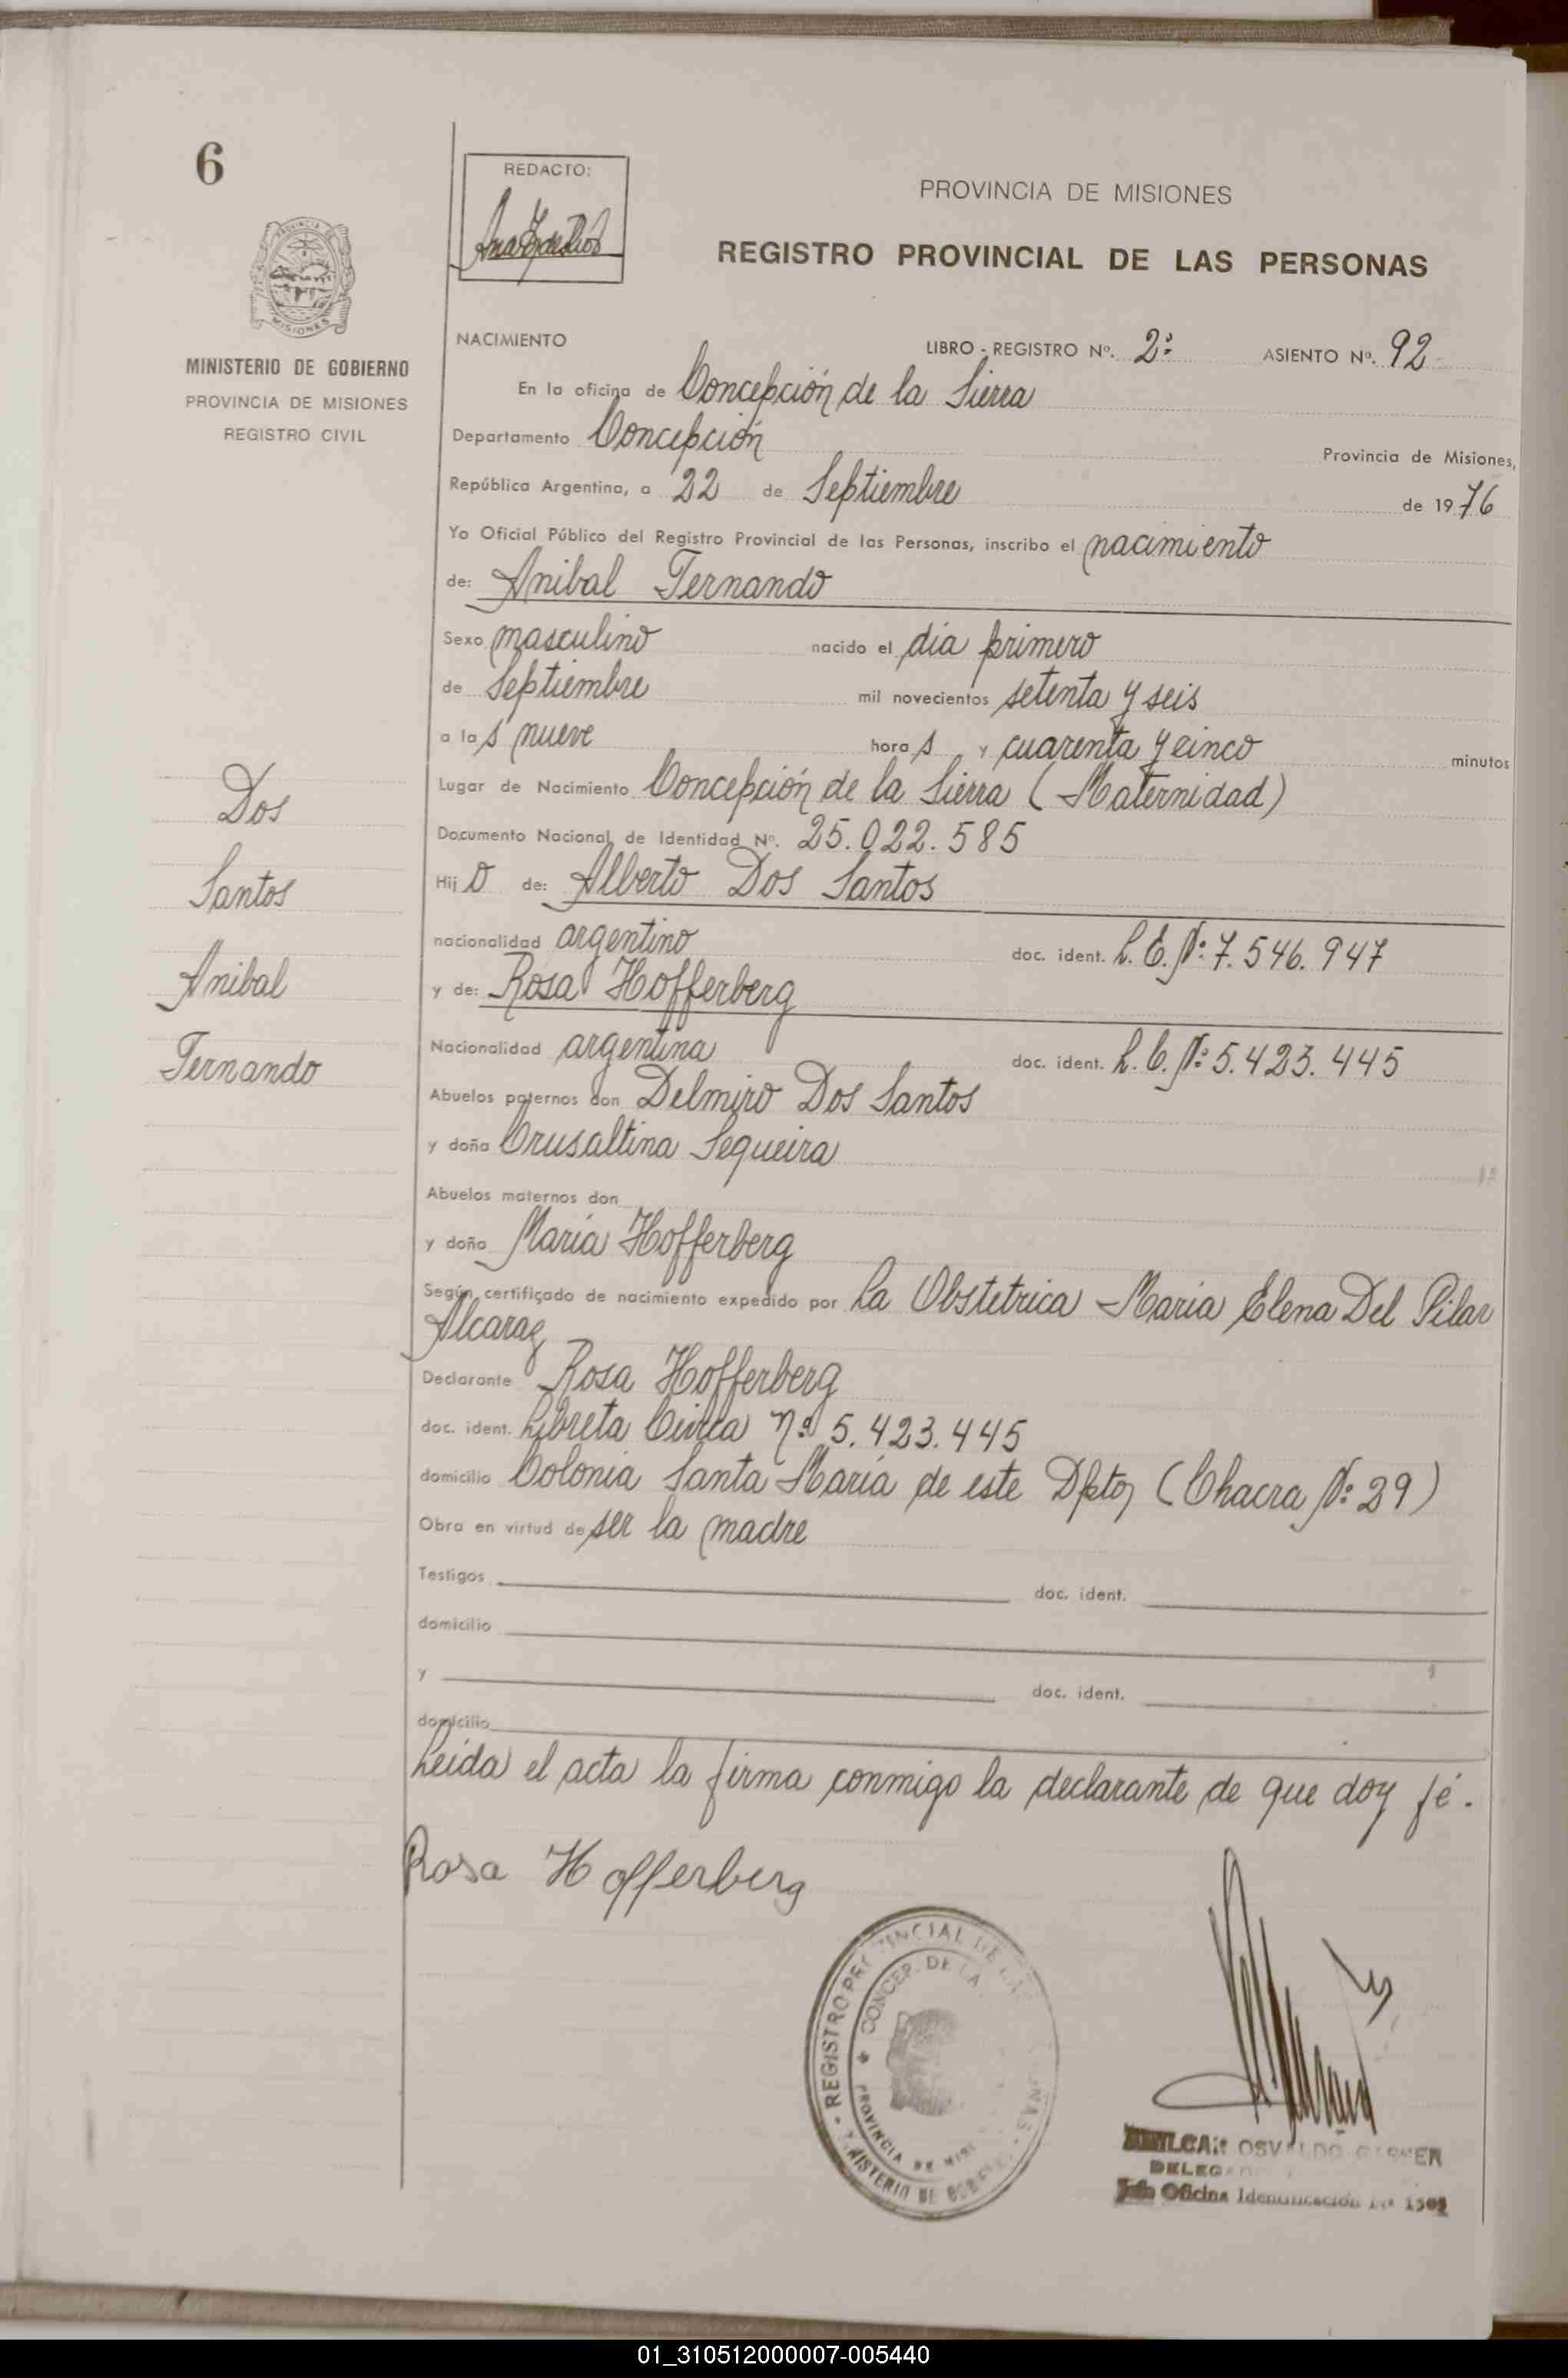 6
REDACTO:
PROVINCIA DE MISIONES
REGISTRO PROVINCIAL DE LAS PERSONAS
MISIONES
MINISTERIO DE GOBIERNO
PROVINCIA DE MISIONES
REGISTRO CIVIL
NACIMIENTO LIBRO - REGISTRO Nº. 2º ASIENTO Nº. 92
En la oficina de Concepción de la Sierra
Departamento Concepción Provincia de Misiones,
República Argentina, a 22 de Septiembre de 1976
Yo Oficial Público del Registro Provincial de las Personas, inscribo el nacimiento
de: Anibal Fernando
Sexo masculino nacido el día primero
de Septiembre mil novecientos setenta y seis
a las nueve horas y cuarenta y cinco minutos
Lugar de Nacimiento Concepción de la Sierra (Maternidad)
Documento Nacional de Identidad Nº. 25.022.585
Hijo de: Alberto Dos Santos
nacionalidad argentino doc. ident. L.E.Nº 7.546.947
y de: Rosa Hofferberg
Nacionalidad argentina doc. ident. L.C.Nº 5.423.445
Abuelos paternos don Delmiro Dos Santos
y doña Crusaltina Sequeira
Abuelos maternos don
y doña María Hofferberg
Según certificado de nacimiento expedido por La Obstetrica Maria Elena Del Pilar
Alcaraz
Declarante Rosa Hofferberg
doc. ident. Libreta Civica nº 5.423.445
domicilio Colonia Santa María de este Dpto, (Chacra Nº 29)
Obra en virtud de ser la madre
Testigos doc. ident.
domicilio
y doc. ident.
domicilio
Leída el acta la firma conmigo la declarante de que doy fé.
Dos
Santos
Anibal
Fernando
Rosa Hofferberg
REGISTRO PROVINCIAL DE
CONCEP. DE LA
PROVINCIA DE
OSVALDO
Oficina Identificación
01_310512000007-005440